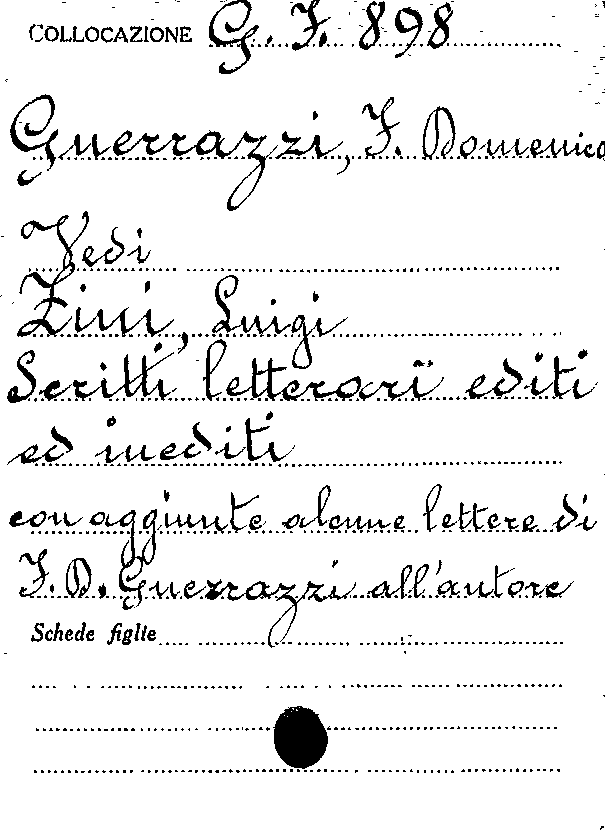 COLLOCAZIONE G. F. 898
Guerrazzi, F. Domenico
Vedi
Zini, Luigi
Scritti letterarï editi
ed inediti
con aggiunte alcune lettere di
F. D. Guerrazzi all'autore
Schede figlie